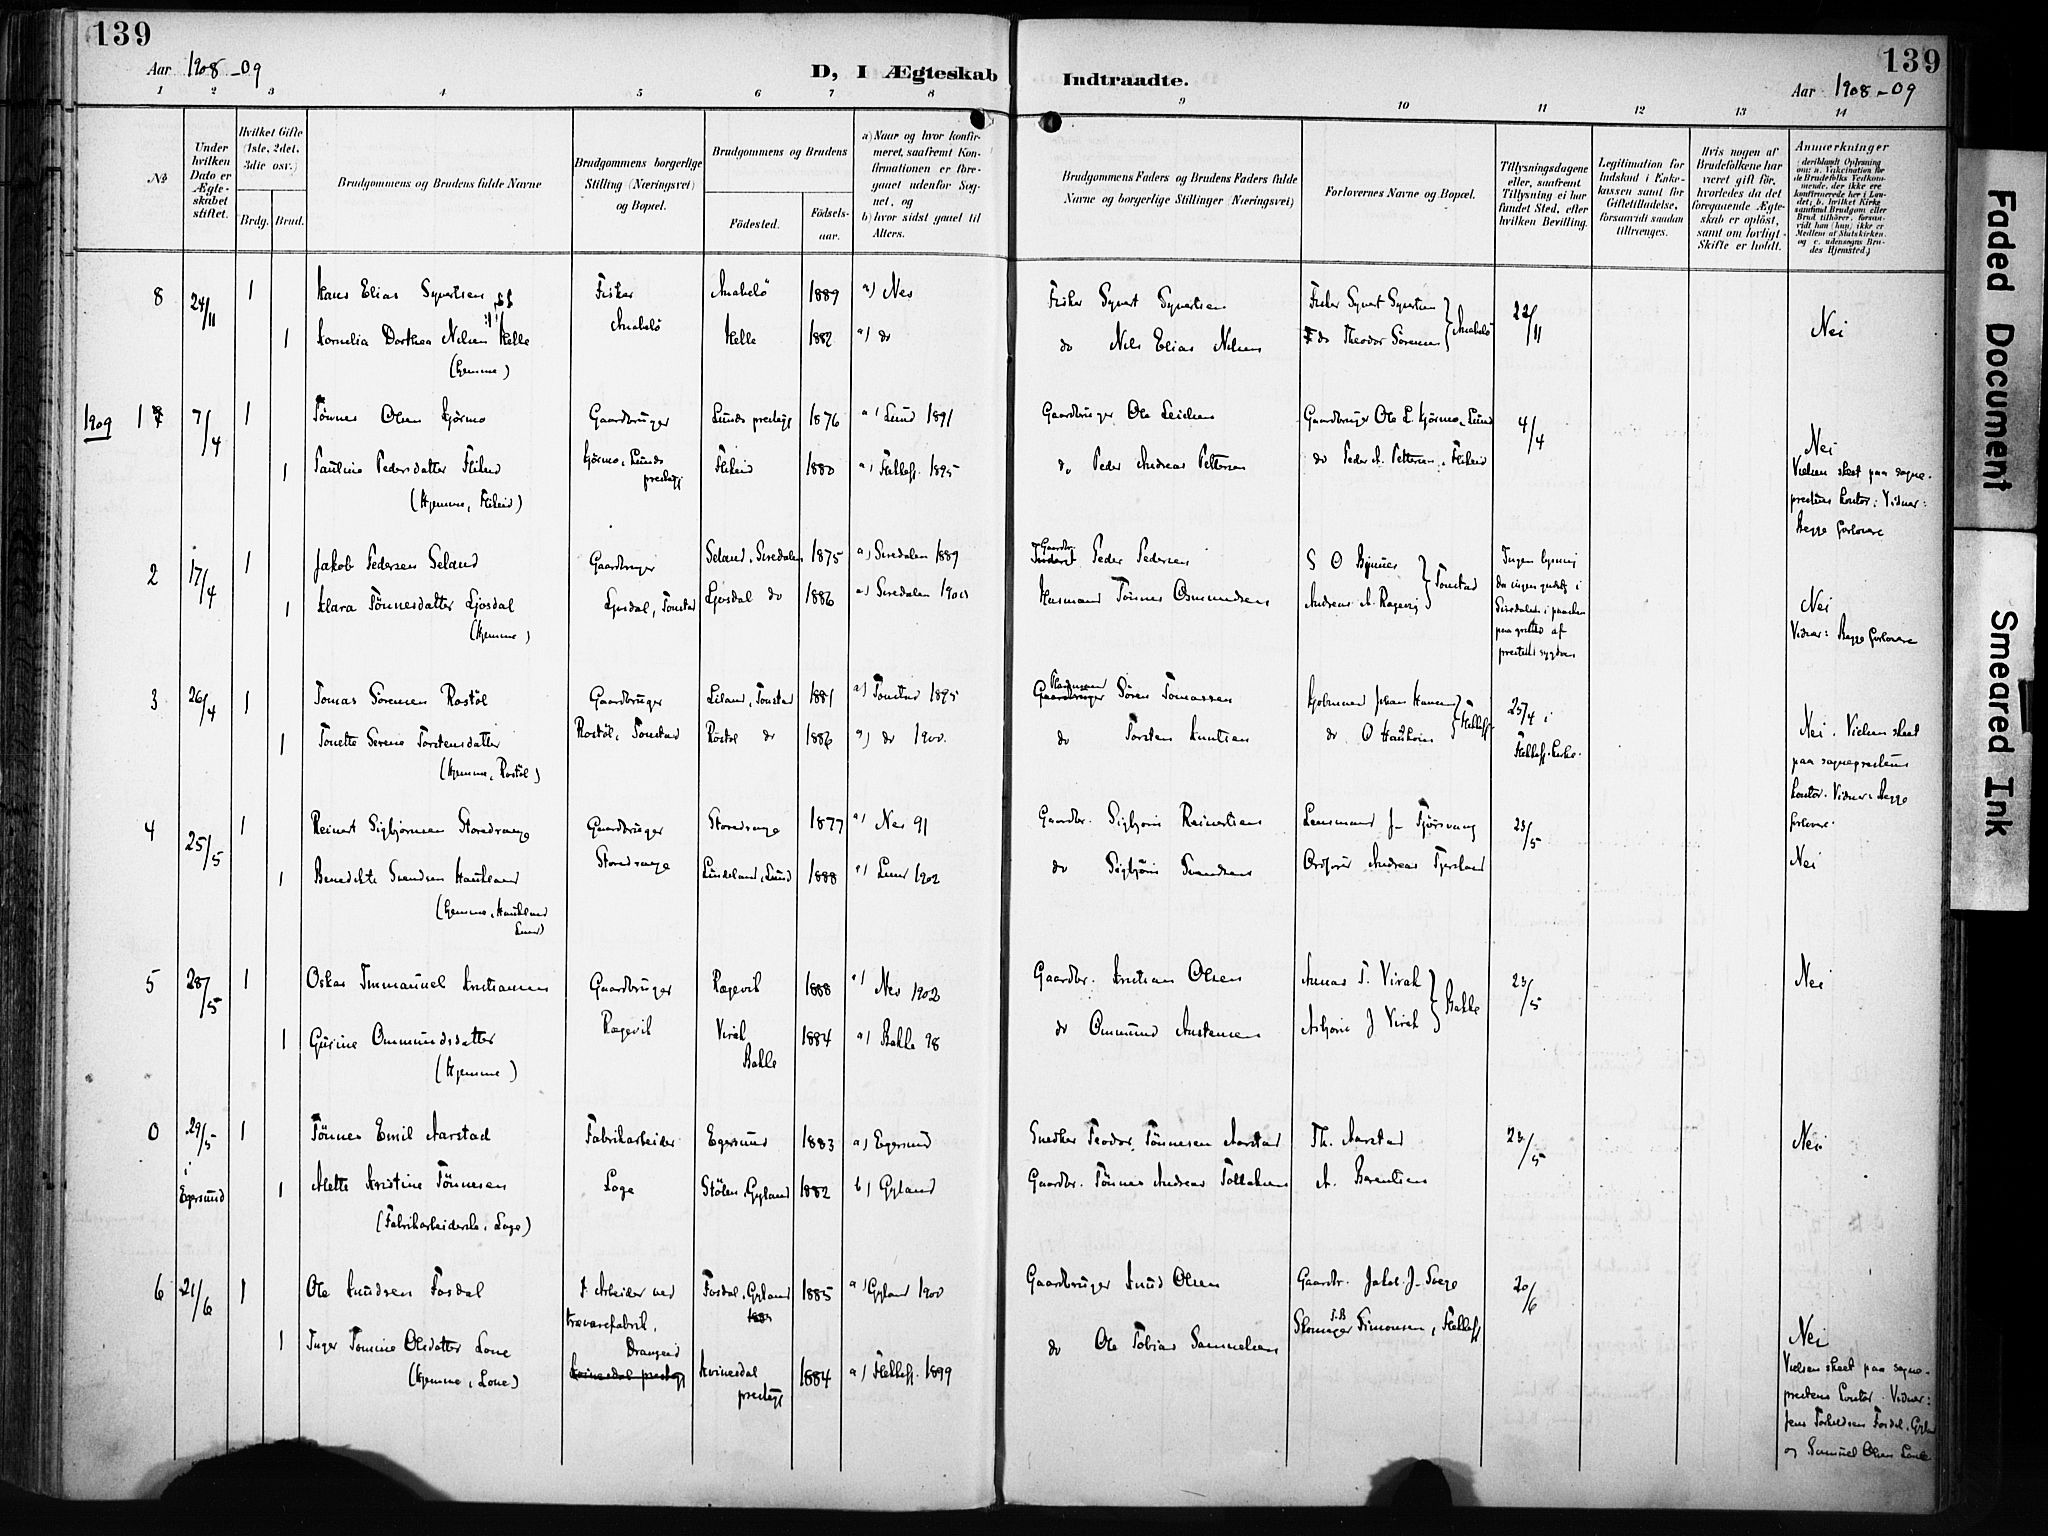 139
Aar 1908-09
D, I Ægteskab
Indtraadte.
139
Aar 1908-09
1 2 3 4 5 6 7 8 9 10 11 12 13 14
No
Under hvilken Dato er Ægteskabet stiftet.
Hvilket Gifte (1ste, 2det, 3die osv.)
Brdg. Brud.
Brudgommens og Brudens fulde Navne
Brudgommens borgerlige Stilling (Næringsvei) og Bopæl.
Brudgommens og Brudens
Födested. Födselsaar.
a) Naar og hvor konfirmeret, saafremt Konfirmationen er foregaaet udenfor Sognet, og
b) hvor sidst gaaet til Alters.
Brudgommens Faders og Brudens Faders fulde Navne og borgerlige Stillinger (Næringsvei)
Forlovernes Navne og Bopæl.
Tillysningsdagene eller, saafremt Tillysning ei har fundet Sted, efter hvilken Bevilling.
Legitimation for Indskud i Enkekassen samt for Giftetilladelse, forsaavidt saadan tiltrænges.
Hvis nogen af Brudefolkene har været gift för, hvorledes da det foregaaende Ægteskab er oplöst, samt om lovligt Skifte er holdt.
Anmærkninger
(deriblandt Oplysning om: a. Vakcination for de Brudefolks Vedkommende, der ikke ere konfirmerede her i Landet; b. hvilket Kirkesamfund Brudgom eller Brud tilhører, forsaavidt han (hun) ikke er Medlem af Statskirken, og c. udensogns Brudes Hjemsted.)
8 24/11 1 Hans Elias Syvertsen Fisker Anabelö 1889 a) Nes Fisker Syvert Syvertsen Fisker Syvert Syvertsen 22/11 Nei
Anabelö
1 Kornelia Dorthea Nilsen Helle Helle 1882 a) do do Nils Elias Nilsen do Theodor Sörensen Anabelö
(hjemme)
1909 1 7/4 1 Tönnes Olsen Hjörmo Gaardbruger Lunds prestegj 1876 a) Lund 1891 Gaardbruger Ole Gaardbruger Ole L. Hjörmo, Lund 4/4 Nei
Hjörmo, Lunds prestegj
1 Pauline Pedersdatter Flikeid Flikeid 1880 a) Flekkefj. 1895 do Peder Andreas Pettersen do Peder A. Pettersen, Flikeid
(Hjemme, Flikeid)
Vielsen skeet paa sogneprestens kontor. Vidner: Begge forlovere
2 17/4 1 Jakob Pedersen Seland Gaardbruger Seland, Siredalen 1875 a) Siredalen 1889 Gaardbr. Peder Pedersen S O Tonstad
Ljosdal, Tonstad
1 Klara Tönnesdatter Ljosdal Ljosdal do 1886 a) Siredalen 1900 Husmand Tönnes Osmundsen Andreas A.
(Hjemme)
Ingen lysning da ingen gudstj i Siredalen i paasken paa grund af prestens sygdom
Nei
Vidner: Begge forlovere
3 26/4 1 Tomas Sörensen Rostöl Gaardbruger Liland, Tonstad 1881 a) Tonstad 1895 Sören Tomassen Kjøbmand Johan Hansen 25/4 i Flekkefj. kirke.
Rostöl, Tonstad
1 Tonette Serine Torstensdatter Rostöl do 1886 a) do 1900. do Torsten Knutsen do O Flekkefj.
(Hjemme, Rostöl)
Nei. Vielsen skeet paa sogneprestens kontor. Vidner: Begge forlovere.
4 25/5 1 Reinert Sigbjörnsen Storedrange Gaardbruger Storedrange 1877 a) Nes 91 Gaardbr. Sigbjörn Reinertsen Lensmand J. 23/5 Nei
Storedrange
1 Benedikte Svendsen Haukland Lindeland, Lund 1888 a) Lund 1902 do Sigbjörn Svendsen Ordförer Andreas
(hjemme, Haukland Lund)
5 28/5 1 Oskar Immanuel Kristiansen Gaardbruger Rægevik 1888 a) Nes 1902 Gaardbr. Kristian Olsen T. Virak 23/5 Nei
Rægevik
1 Gurine Ommundsdatter Virak Bakke 1884 a) Bakke 98 do Ommund Asbjörn J Virak Bakke
(Hjemme)
0 29/5 i Egersund 1 Tönnes Emil Aarstad Fabrikarbeider Egersund 1883 a) Egersund Snedker Teodor Tönnesen Aarstad Th. Aarstad 23/5 Nei
1 Mette Kristine Tönnesen Loge Stölen, Gyland 1882 b) Gyland Gaardbr. Tönnes Andreas Tollaksen A. Berentsen
(Fabrikarbeiderske, Loge)
6 21/6 1 Ole Knudsen Fosdal Arbeider ved trævarefabrik, Drangeid Fosdal, Gyland 1885 a) Gyland 1900 Gaardbruger Knud Olsen Gaardbr. Jakob J. 20/6
1 Inger Tomine Olsdatter Lone Kvinesdal prestegj 1884 a) Flekkefj. 1899 do Ole Tobias Samuelsen Skomager Simonsen, Flekkefj
(Hjemme, Lone)
Nei
Vielsen skeet paa sogneprestens kontor. Vidner: Jens Fosdal, Gyland og Samuel Olsen Lone
Faded Document
Smeared Ink